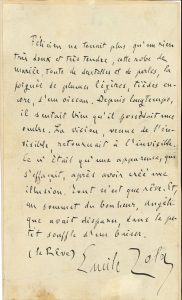 Félicien ne tenait plus qu'un rien
très doux et très tendre, cette robe de
mariée toute de dentelles et de perles, la
poignée de plumes légères, tièdes en-
core, d'un oiseau. Depuis longtemps,
il sentait bien qu'il possédait une
ombre. La vision, venue de l'in-
visible, retournait à l'invisible.
Ce n'était qu'une apparence, qui
s'effaçait, après avoir créé une
illusion. Tout n'est que rêve. Et,
au sommet du bonheur, Angéli-
que avait disparu, dans le pe-
tit souffle d'un baiser.
(le Rêve) Emile Zola